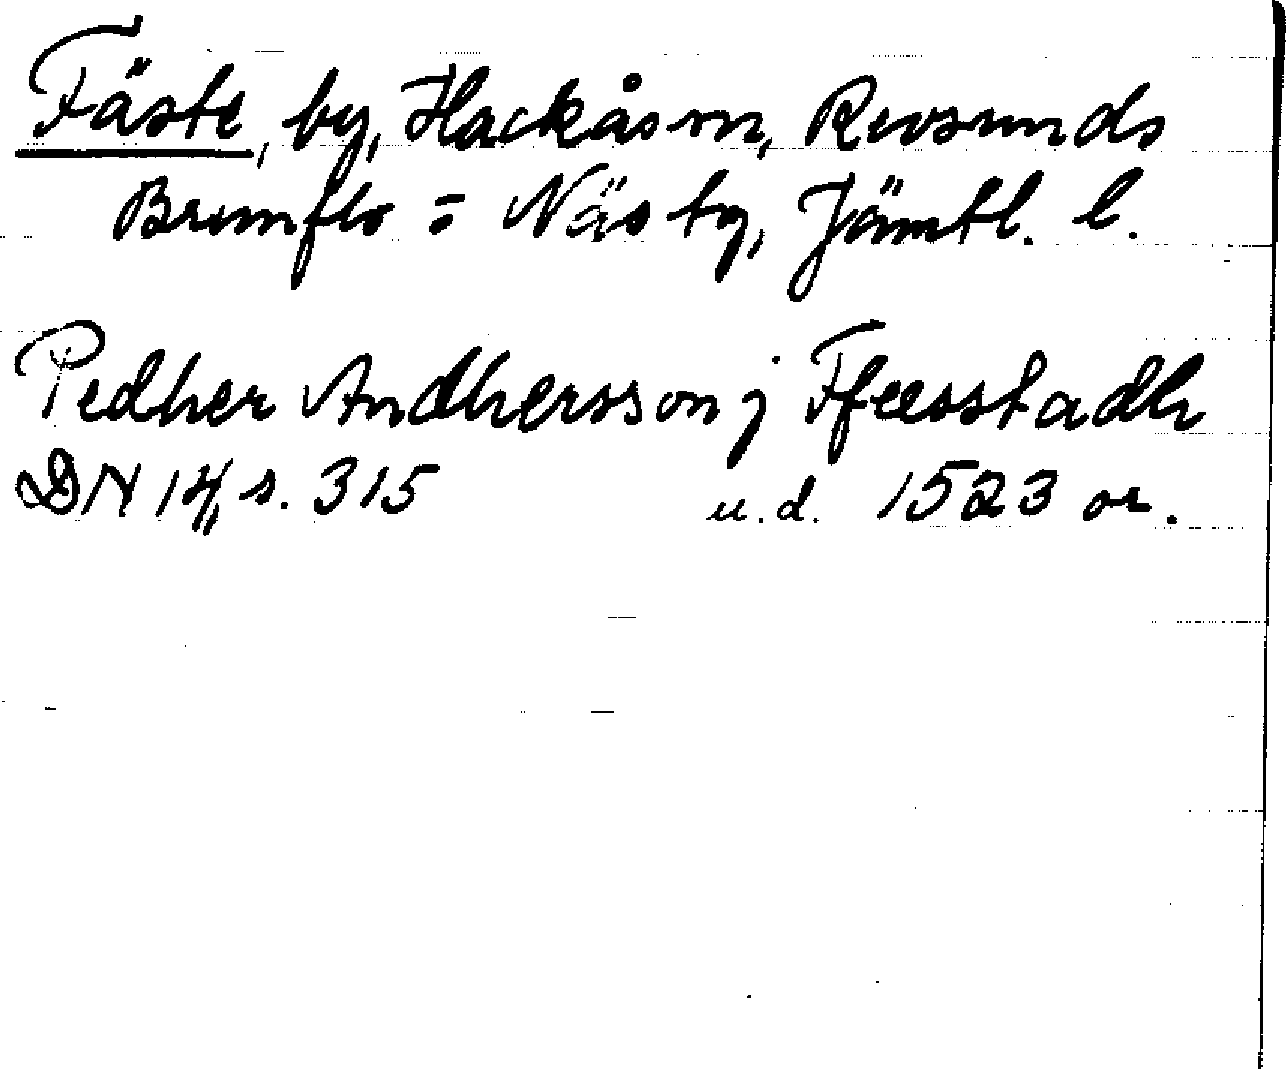 Fäste, by, Hackås sn, Revsunds
Brunflo = Näs tg, Jämtl. l.
Pedher Andhersson j Ffeesstadh
DN 14, s. 315 u.d. 1523 or.